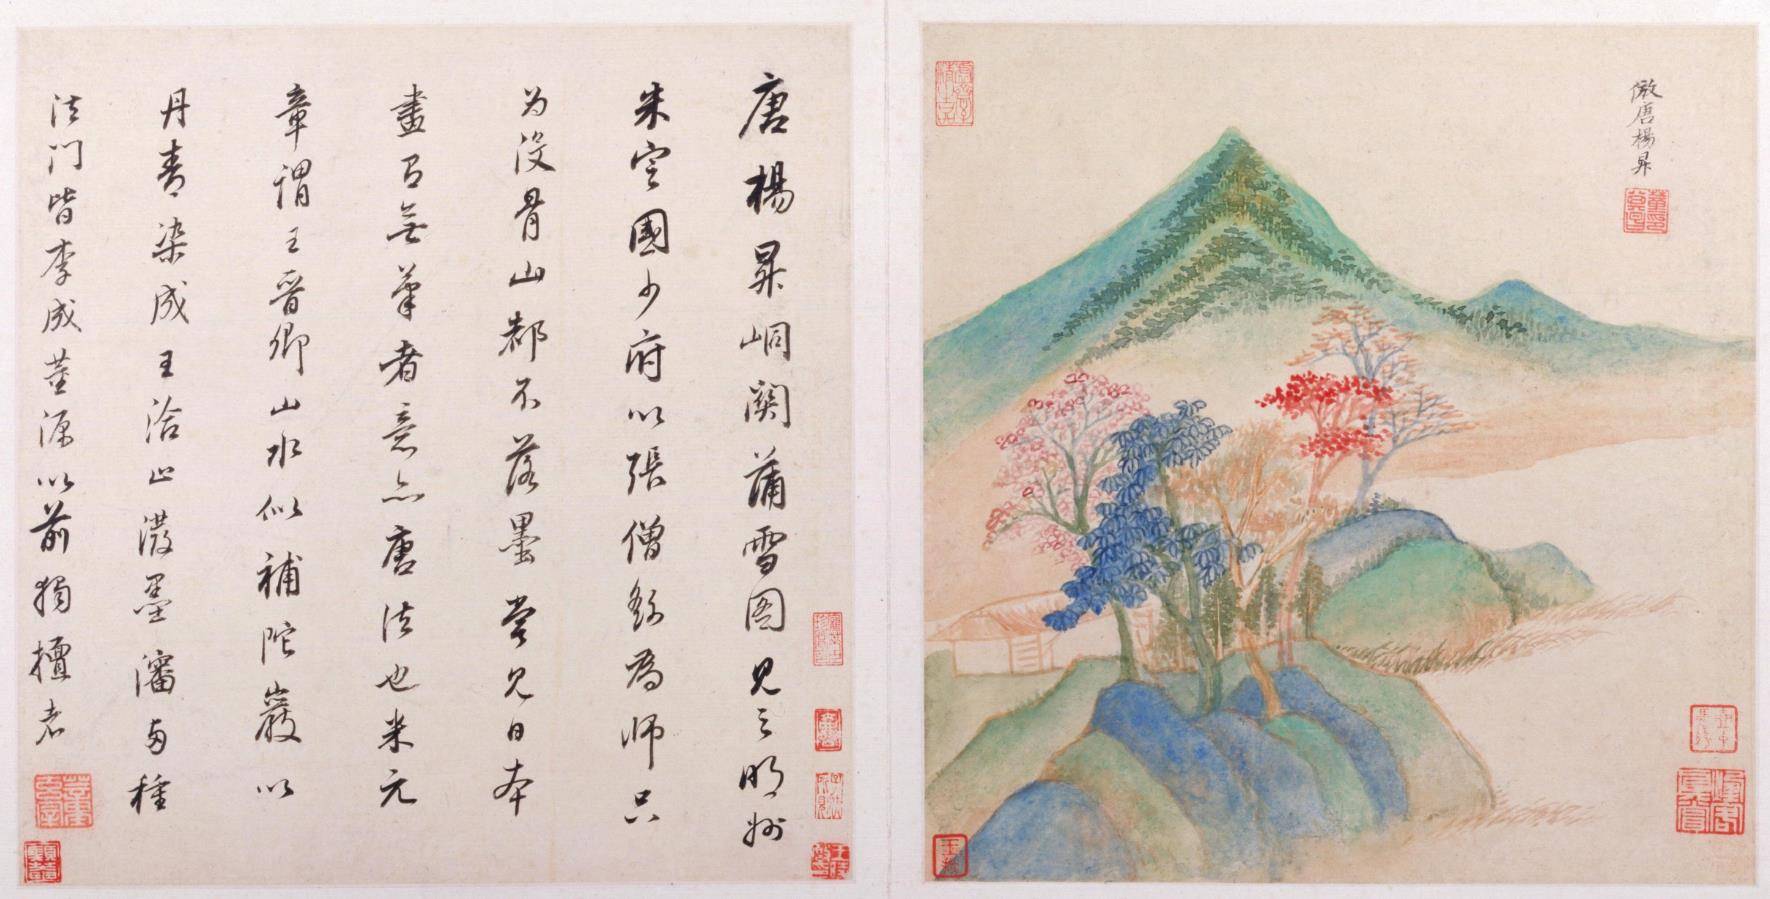 倣唐楊昇
唐楊昇峒關蒲雪图見之明州
朱定國少府以張僧繇為師只
为没骨山都不落墨嘗見日本
畫有無筆者意亦唐法也米元
章謂王晉卿山水似補陀巖以
丹青染成王洽止潑墨瀋兩種
法门皆李成董源以前獨擅者